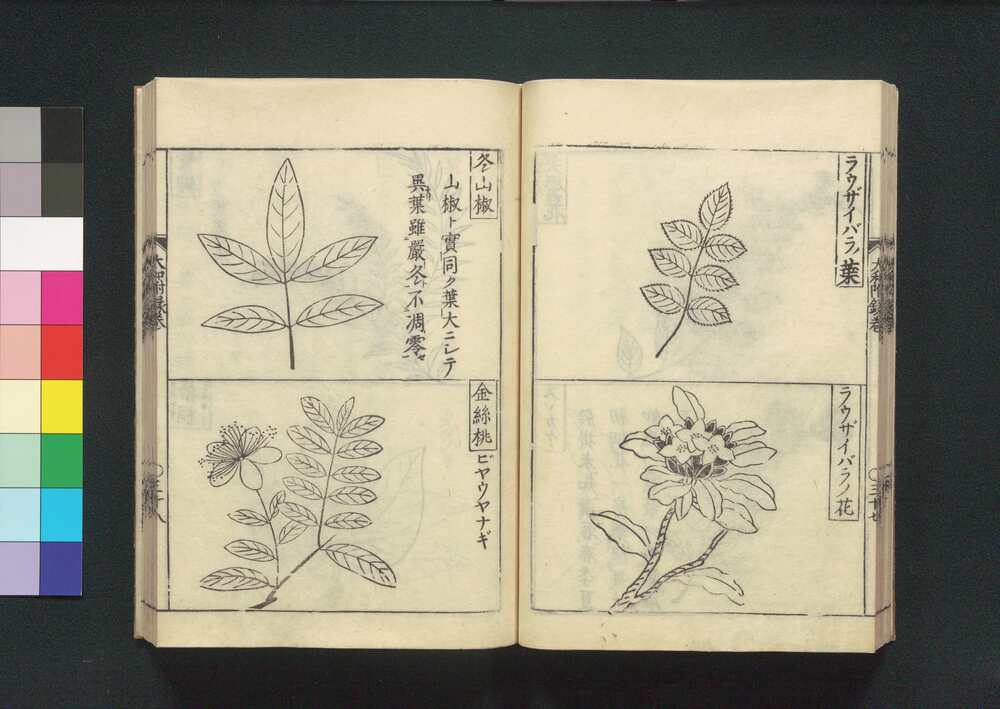 ラウザイバラノ葉
ラウザイバラノ花
冬山椒
山椒ト實同ク葉大ニシテ
異葉雖嚴冬不凋零
金絲桃
ビヤウヤナギ
大和附録巻
〇三十七
大和附録巻